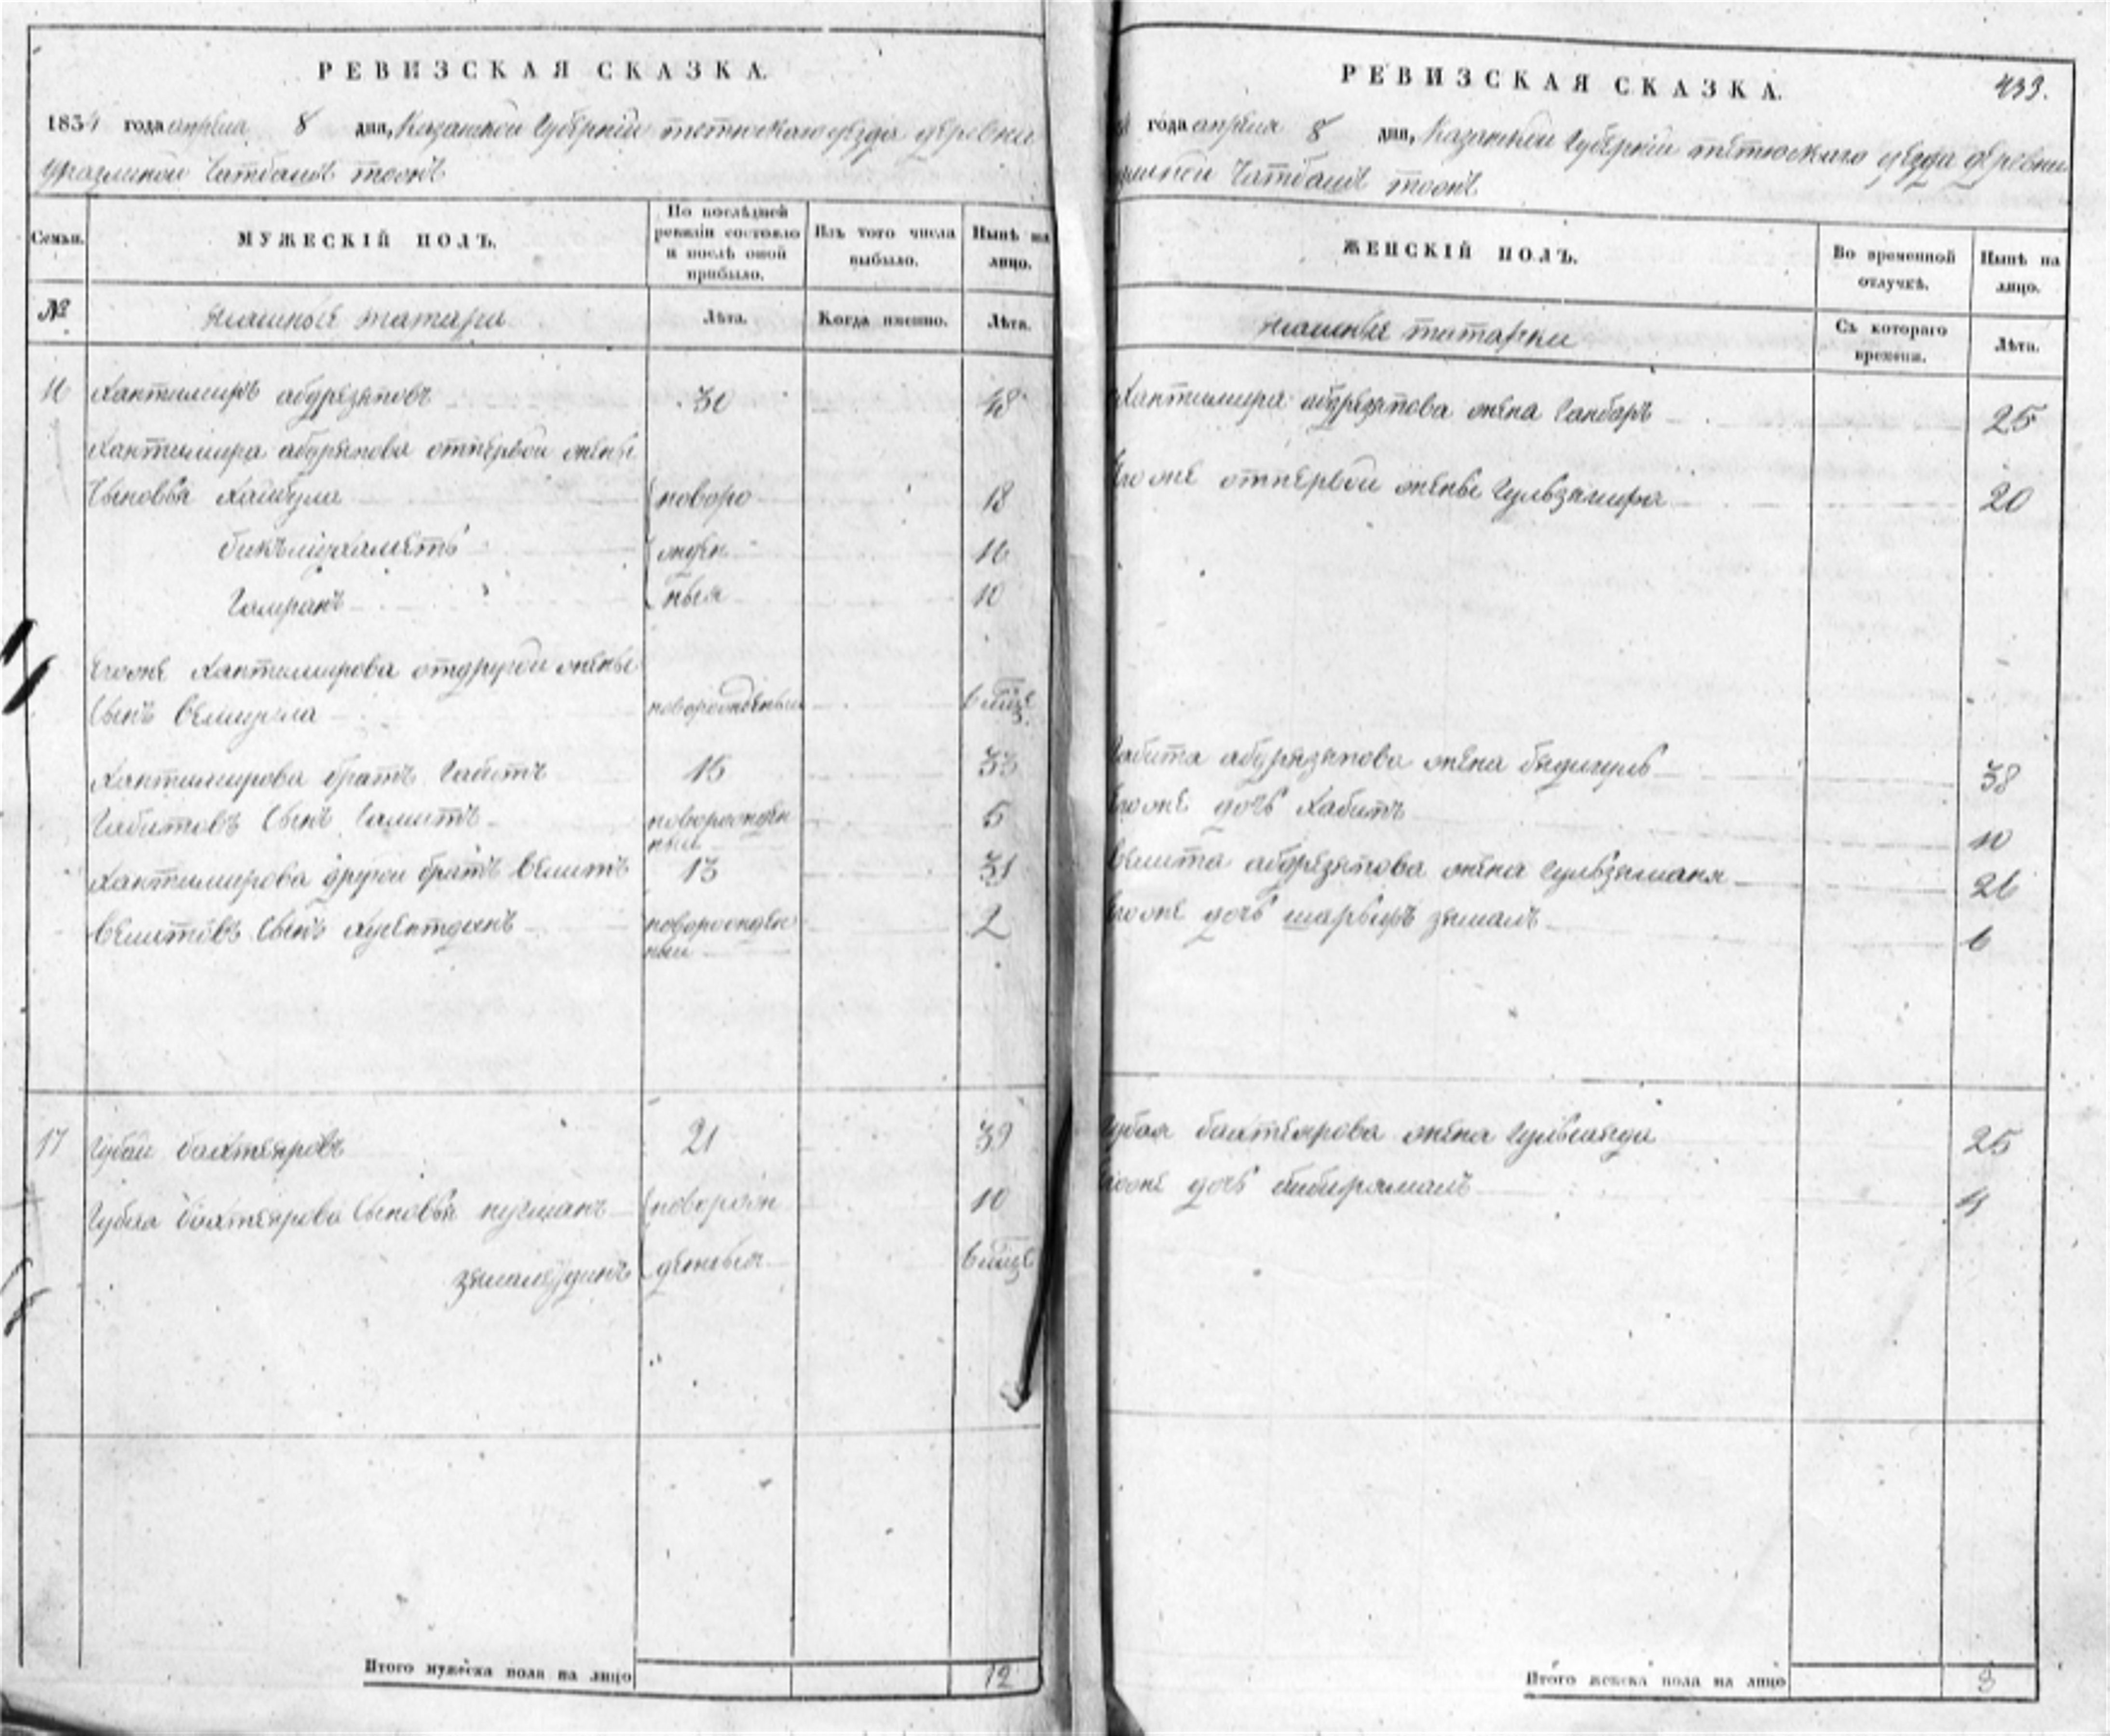 РЕВИЗСКАЯ СКАЗКА.
1834 года апреля 8 дня, Казанской Губернiи тетюскаго уезда деревни
Уразлиной Чатбашъ тожъ
Семьи.
МУЖЕСКIЙ ПОЛЪ.
По послѣдней ревизiи состояло и послѣ оной прибыло.
Изъ того числа выбыло.
Нынѣ на лицо.
№
ясашныя татара
Лѣта.
Когда именно.
Лѣта.
16 Хантимиръ абдрезяповъ 30 48
Хантимира абдрезяпова отпервой жены
Сыновья Хайбула новоро 18
бикъмухаметь жден 16
Гамранъ ныя 10
Егоже Хантимирова отдругой жены
Сынъ новорожденый
Хантимирова братъ Сабитъ 15 33
Сабитовъ Сынъ новорожден ный 5
Хантимирова другой братъ 13 31
Сынъ новорожден ный 2
17 Губай бахтеяровъ 21 39
Губая бахтеярова Сыновья нугманъ новорож 10
денныя
Итого мужеска пола на лицо 12
РЕВИЗСКАЯ СКАЗКА. 439.
года апреля 8 дня, Казанской Губернiи тетюскаго уезда деревни
Чатбашъ тожъ
ЖЕНСКIЙ ПОЛЪ.
Во временной отлучкѣ.
Нынѣ на лицо.
ясашныя татарки
Съ котораго времени.
Лѣта.
Хантимира абдрезяпова жена 25
Егоже отпервой жены 20
Сабита абдрезяпова жена бядигуль 38
Егоже дочь Хабитъ 10
абдрезяпова жена 26
Егоже дочь 6
Губая бахтеярова жена 25
Егоже дочь 4
Итого женска пола на лицо